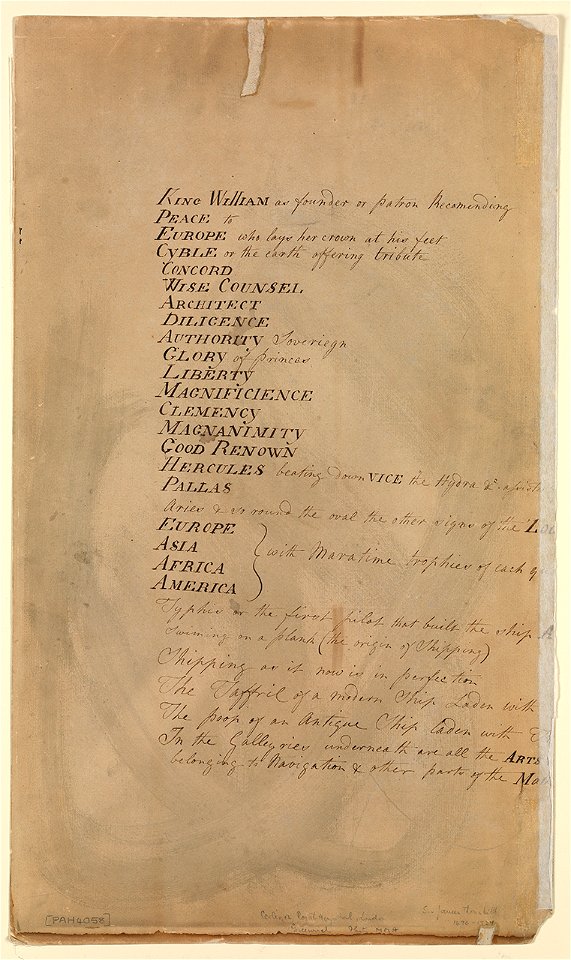 KING WILLIAM as founder or patron Recomending
PEACE to
EUROPE who lays her crown at his feet
CYBLE or the earth offering tribute
CONCORD
WISE COUNSEL
ARCHITECT
DILIGENCE
AUTHORITY Soveriegn
GLORY of princes
LIBERTY
MAGNIFICIENCE
CLEMENCY
MAGNANIMITY
GOOD RENOWN
HERCULES beating down VICE the Hydra &
PALLAS
Aries & so round the oval the other signs of the
EUROPE
ASIA
with Maratime trophies of each
AFRICA
AMERICA
Typhis or the first pilot that built the ship
swiming on a plank (the origin of Shipping)
Shipping as it now is in perfection
The Taffril of a modern Ship Laden with
The poop of an Antique Ship laden with
In the Gallegries underneath are all the ARTS
belonging to Navigation & other parts of the
PAH4058
Ceiling Royal Hospital
Greenwich
Sir James Thornhill